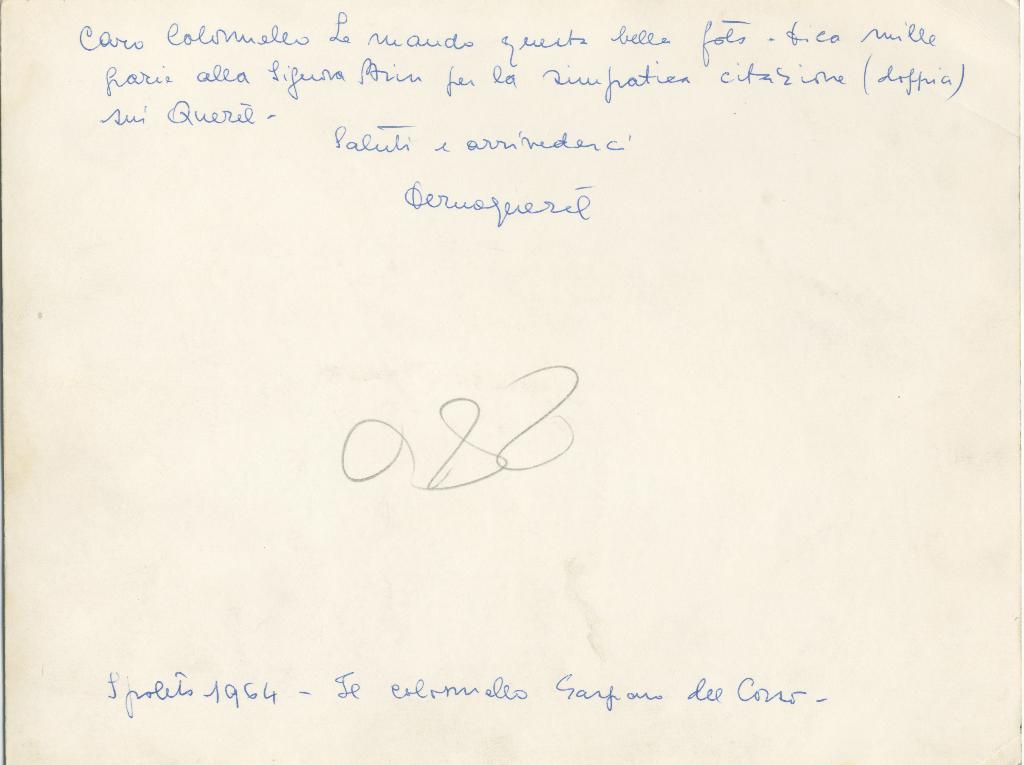 Caro Colonnello Le mando questa bella foto - dica mille
grazie alla Signora per la simpatica citazione (doppia)
sui Querèl -
Saluti e arrivederci

Spoleto 1964 - Il colonnello Gaspero del Corso -